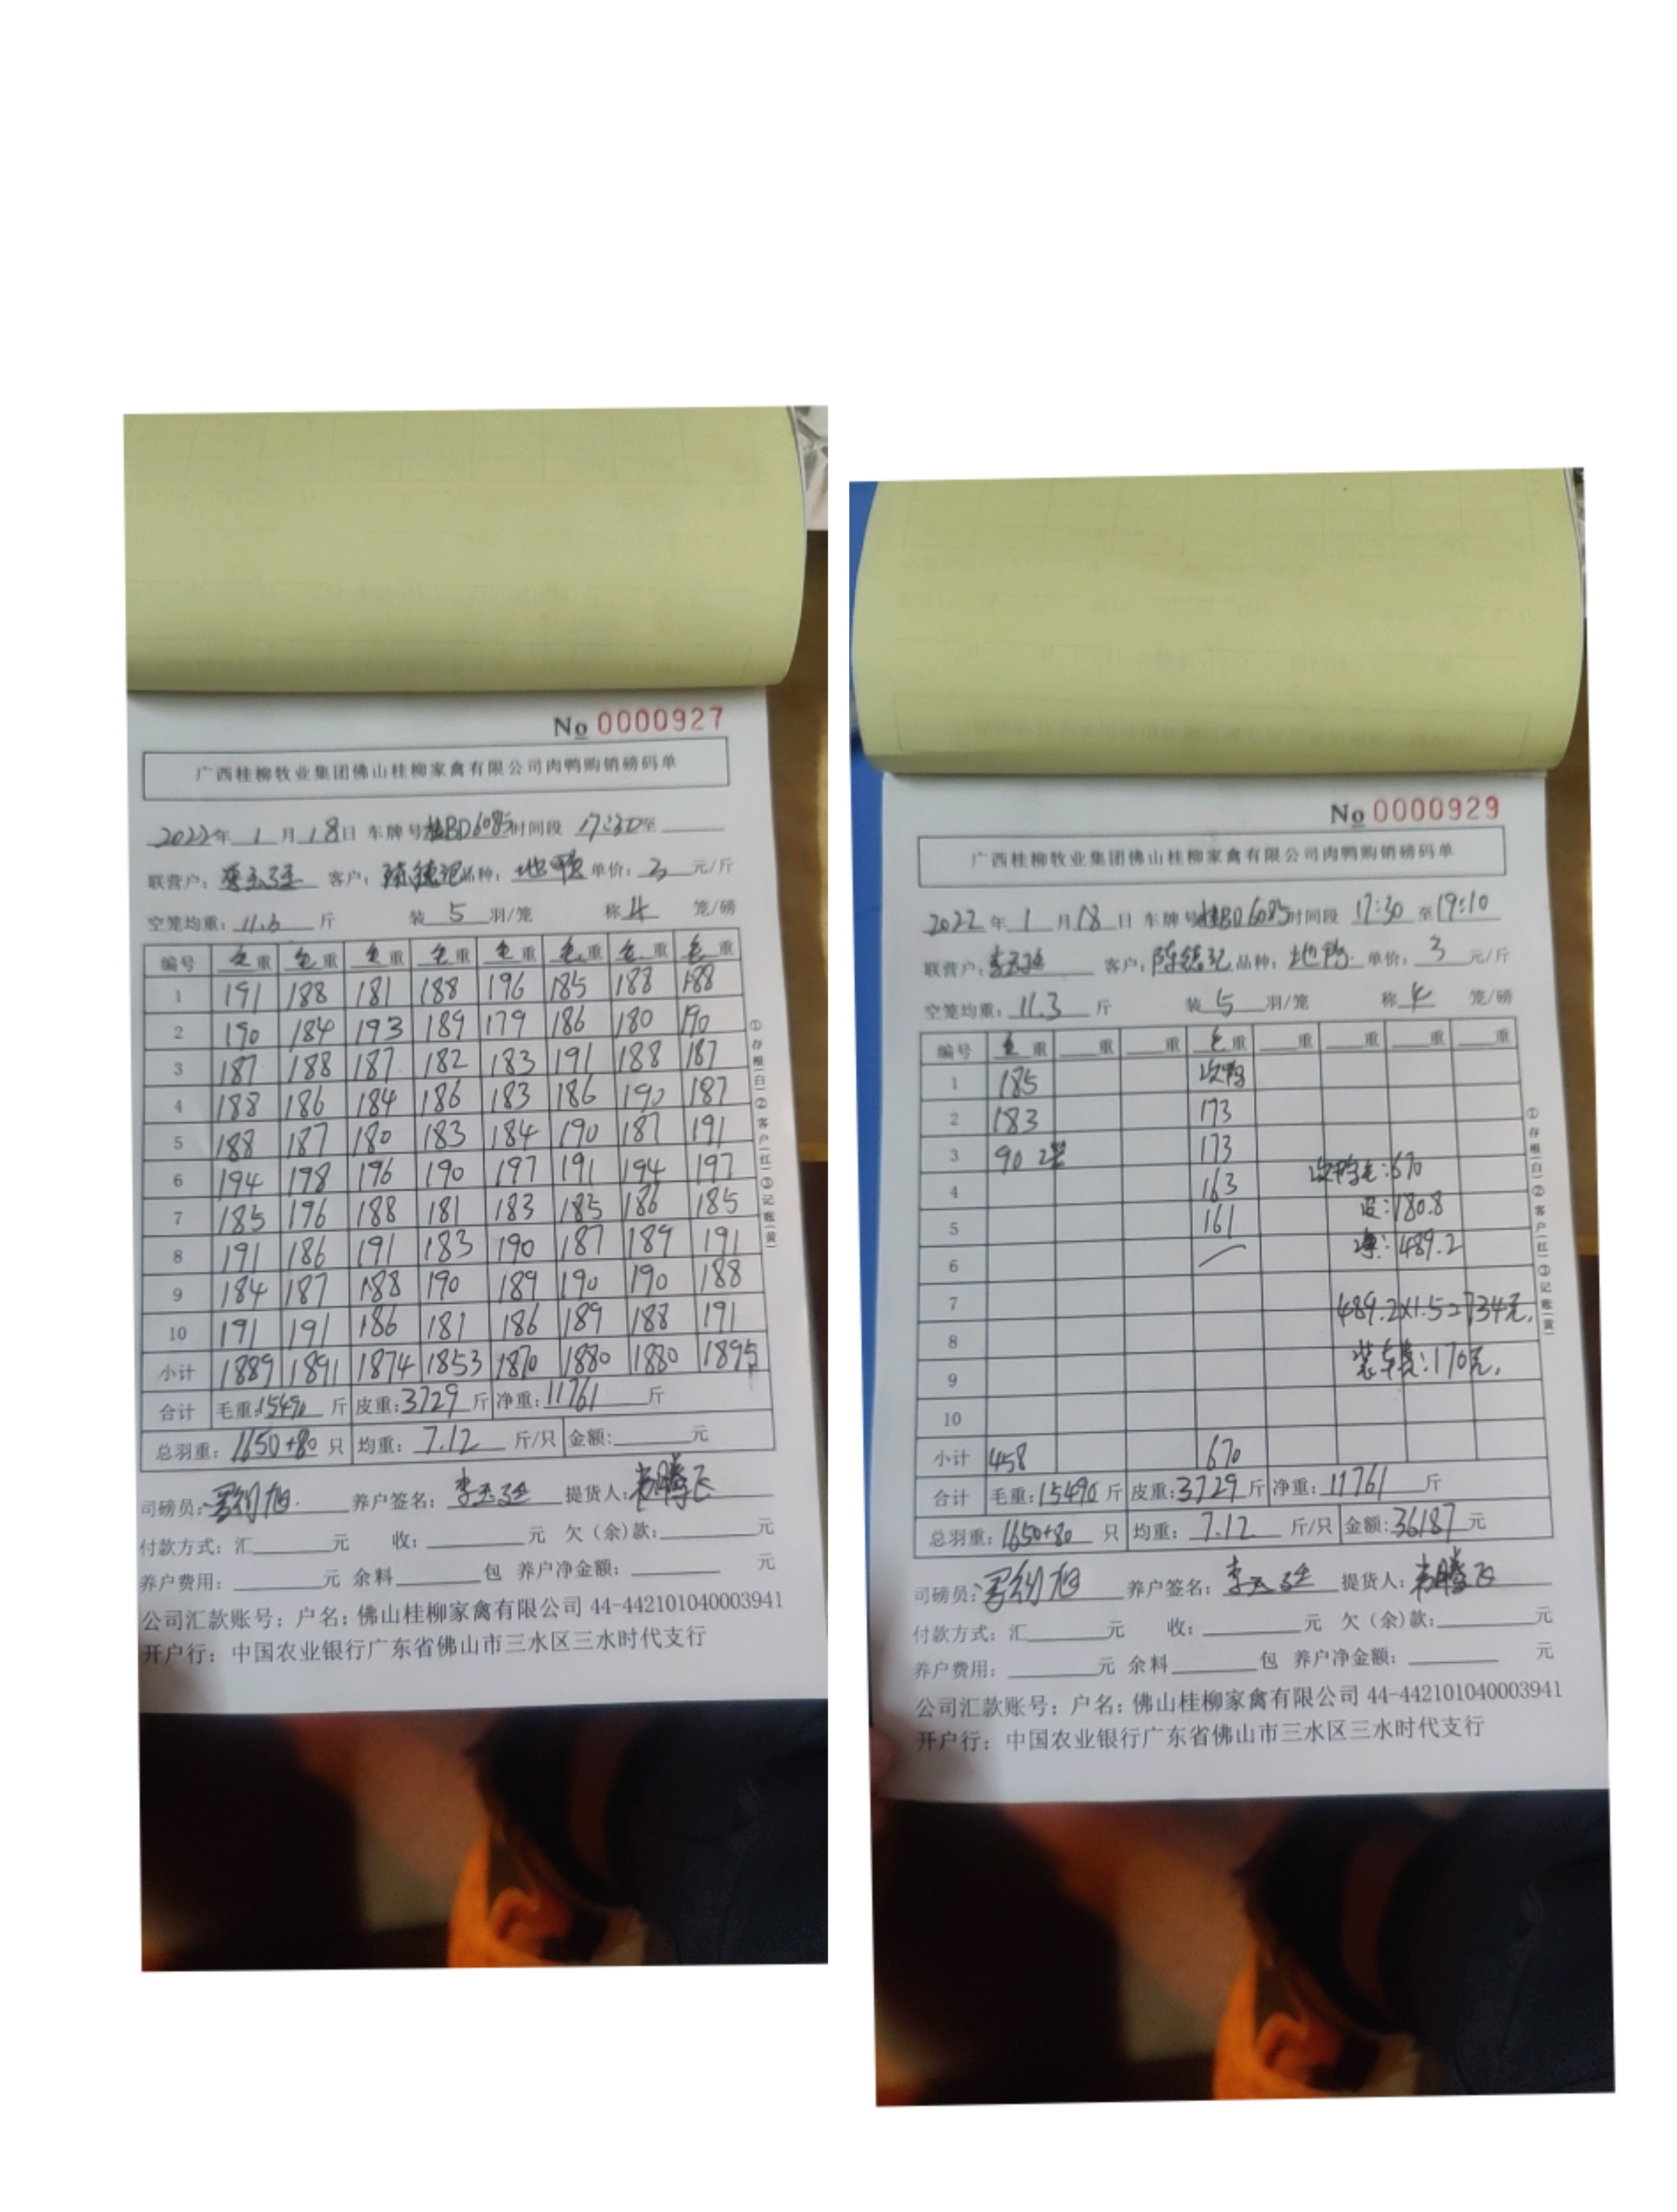 No 0000927
广西桂柳牧业集团佛山桂柳家禽有限公司肉鸭购销磅码单
2022年 1 月 18日 车牌号桂BD6085时间段 17:30至
联营户: 客户: 陈德记品种: 地鸭 单价: 3 元/斤
空笼均重: 11.3 斤 装 5 羽/笼 称 4 笼/磅
编号 毛重 毛重 毛重 毛重 毛重 毛重 毛重 毛重
1 191 188 181 188 196 185 188 188
2 190 184 193 189 179 186 180 190
3 187 188 187 182 183 191 188 187
4 188 186 184 186 183 186 190 187
5 188 187 180 183 184 190 187 191
6 194 198 196 190 197 191 194 197
7 185 196 188 181 183 185 186 185
8 191 186 191 183 190 187 189 191
9 184 187 188 190 189 190 190 188
10 191 191 186 181 186 189 188 191
小计 1889 1891 1874 1853 1870 1880 1880 1895
合计 毛重:15490 斤 皮重:3729 斤 净重:11761 斤
总羽重: 1650+80 只 均重: 7.12 斤/只 金额: 元
司磅员: 养户签名: 提货人:
付款方式: 汇 元 收: 元 欠(余)款: 元
养户费用: 元 余料 包 养户净金额: 元
公司汇款账号: 户名: 佛山桂柳家禽有限公司 44-442101040003941
开户行: 中国农业银行广东省佛山市三水区三水时代支行
①存根(白)②客户(红)③记账(黄)
No 0000929
广西桂柳牧业集团佛山桂柳家禽有限公司肉鸭购销磅码单
2022 年 1 月 18 日 车牌号桂BD6085时间段 17:30 至19:10
联营户: 客户: 陈德记 品种: 地鸭 单价: 3 元/斤
空笼均重: 11.3 斤 装 5 羽/笼 称 4 笼/磅
编号 毛重 重 重 毛重 重 重 重 重
1 185 次鸭
2 183 173
3 90 2笼 173
4 163 次鸭毛:670
5 161 皮:180.8
6 净:489.2
7 489.2x1.5=734元,
8
9 装车费:170元,
10
小计 458 670
合计 毛重:15490 斤 皮重:3729 斤 净重: 11761 斤
总羽重: 1650+80 只 均重: 7.12 斤/只 金额:36187 元
司磅员: 养户签名: 提货人:
付款方式: 汇 元 收: 元 欠(余)款: 元
养户费用: 元 余料 包 养户净金额: 元
公司汇款账号: 户名: 佛山桂柳家禽有限公司 44-442101040003941
开户行: 中国农业银行广东省佛山市三水区三水时代支行
①存根(白)②客户(红)③记账(黄)